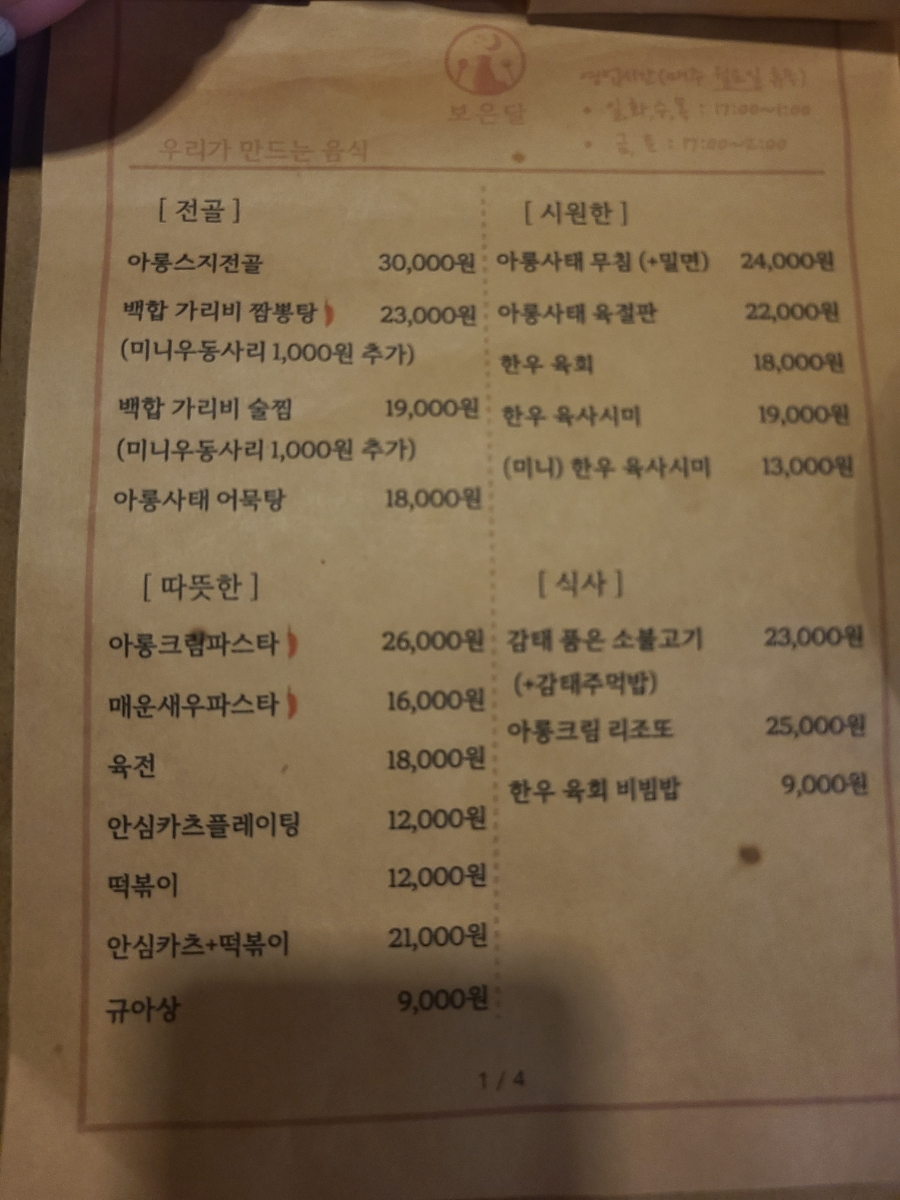 보은달
영업시간(매주 월요일 휴무)
• 일,화,수,목 : 17:00~1:00
• 금, 토 : 17:00~2:00
우리가 만드는 음식
[ 전골 ]
아롱스지전골 30,000원
백합 가리비 짬뽕탕 23,000원
(미니우동사리 1,000원 추가)
백합 가리비 술찜 19,000원
(미니우동사리 1,000원 추가)
아롱사태 어묵탕 18,000원
[ 시원한 ]
아롱사태 무침 (+밀면) 24,000원
아롱사태 육절판 22,000원
한우 육회 18,000원
한우 육사시미 19,000원
(미니) 한우 육사시미 13,000원
[ 따뜻한 ]
아롱크림파스타 26,000원
매운새우파스타 16,000원
육전 18,000원
안심카츠플레이팅 12,000원
떡볶이 12,000원
안심카츠+떡볶이 21,000원
규아상 9,000원
[ 식사 ]
감태 품은 소불고기 23,000원
(+감태주먹밥)
아롱크림 리조또 25,000원
한우 육회 비빔밥 9,000원
1 / 4